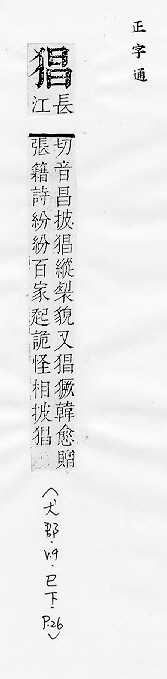 正字通
猖
長江
切音昌披猖縱裂貌又猖獗韓愈贈
張籍詩紛紛百家起詭怪相披猖
(犬部·巳下·P.26)